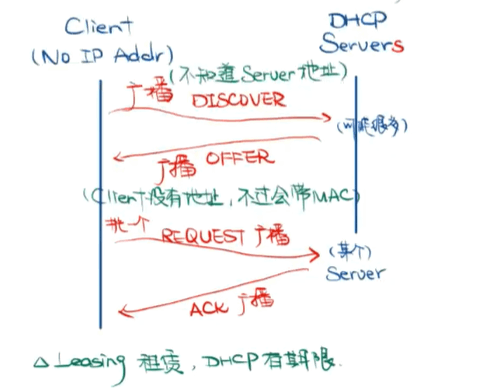 Client
(No IP Addr)
DHCP
Servers
(不知道Server地址)
广播 DISCOVER
(可能很多)
广播 OFFER
(Client没有地址,不过会带MAC)
挑一个
REQUEST 广播
(某个)
Server
ACK 广播
△ Leasing 租赁, DHCP有期限.